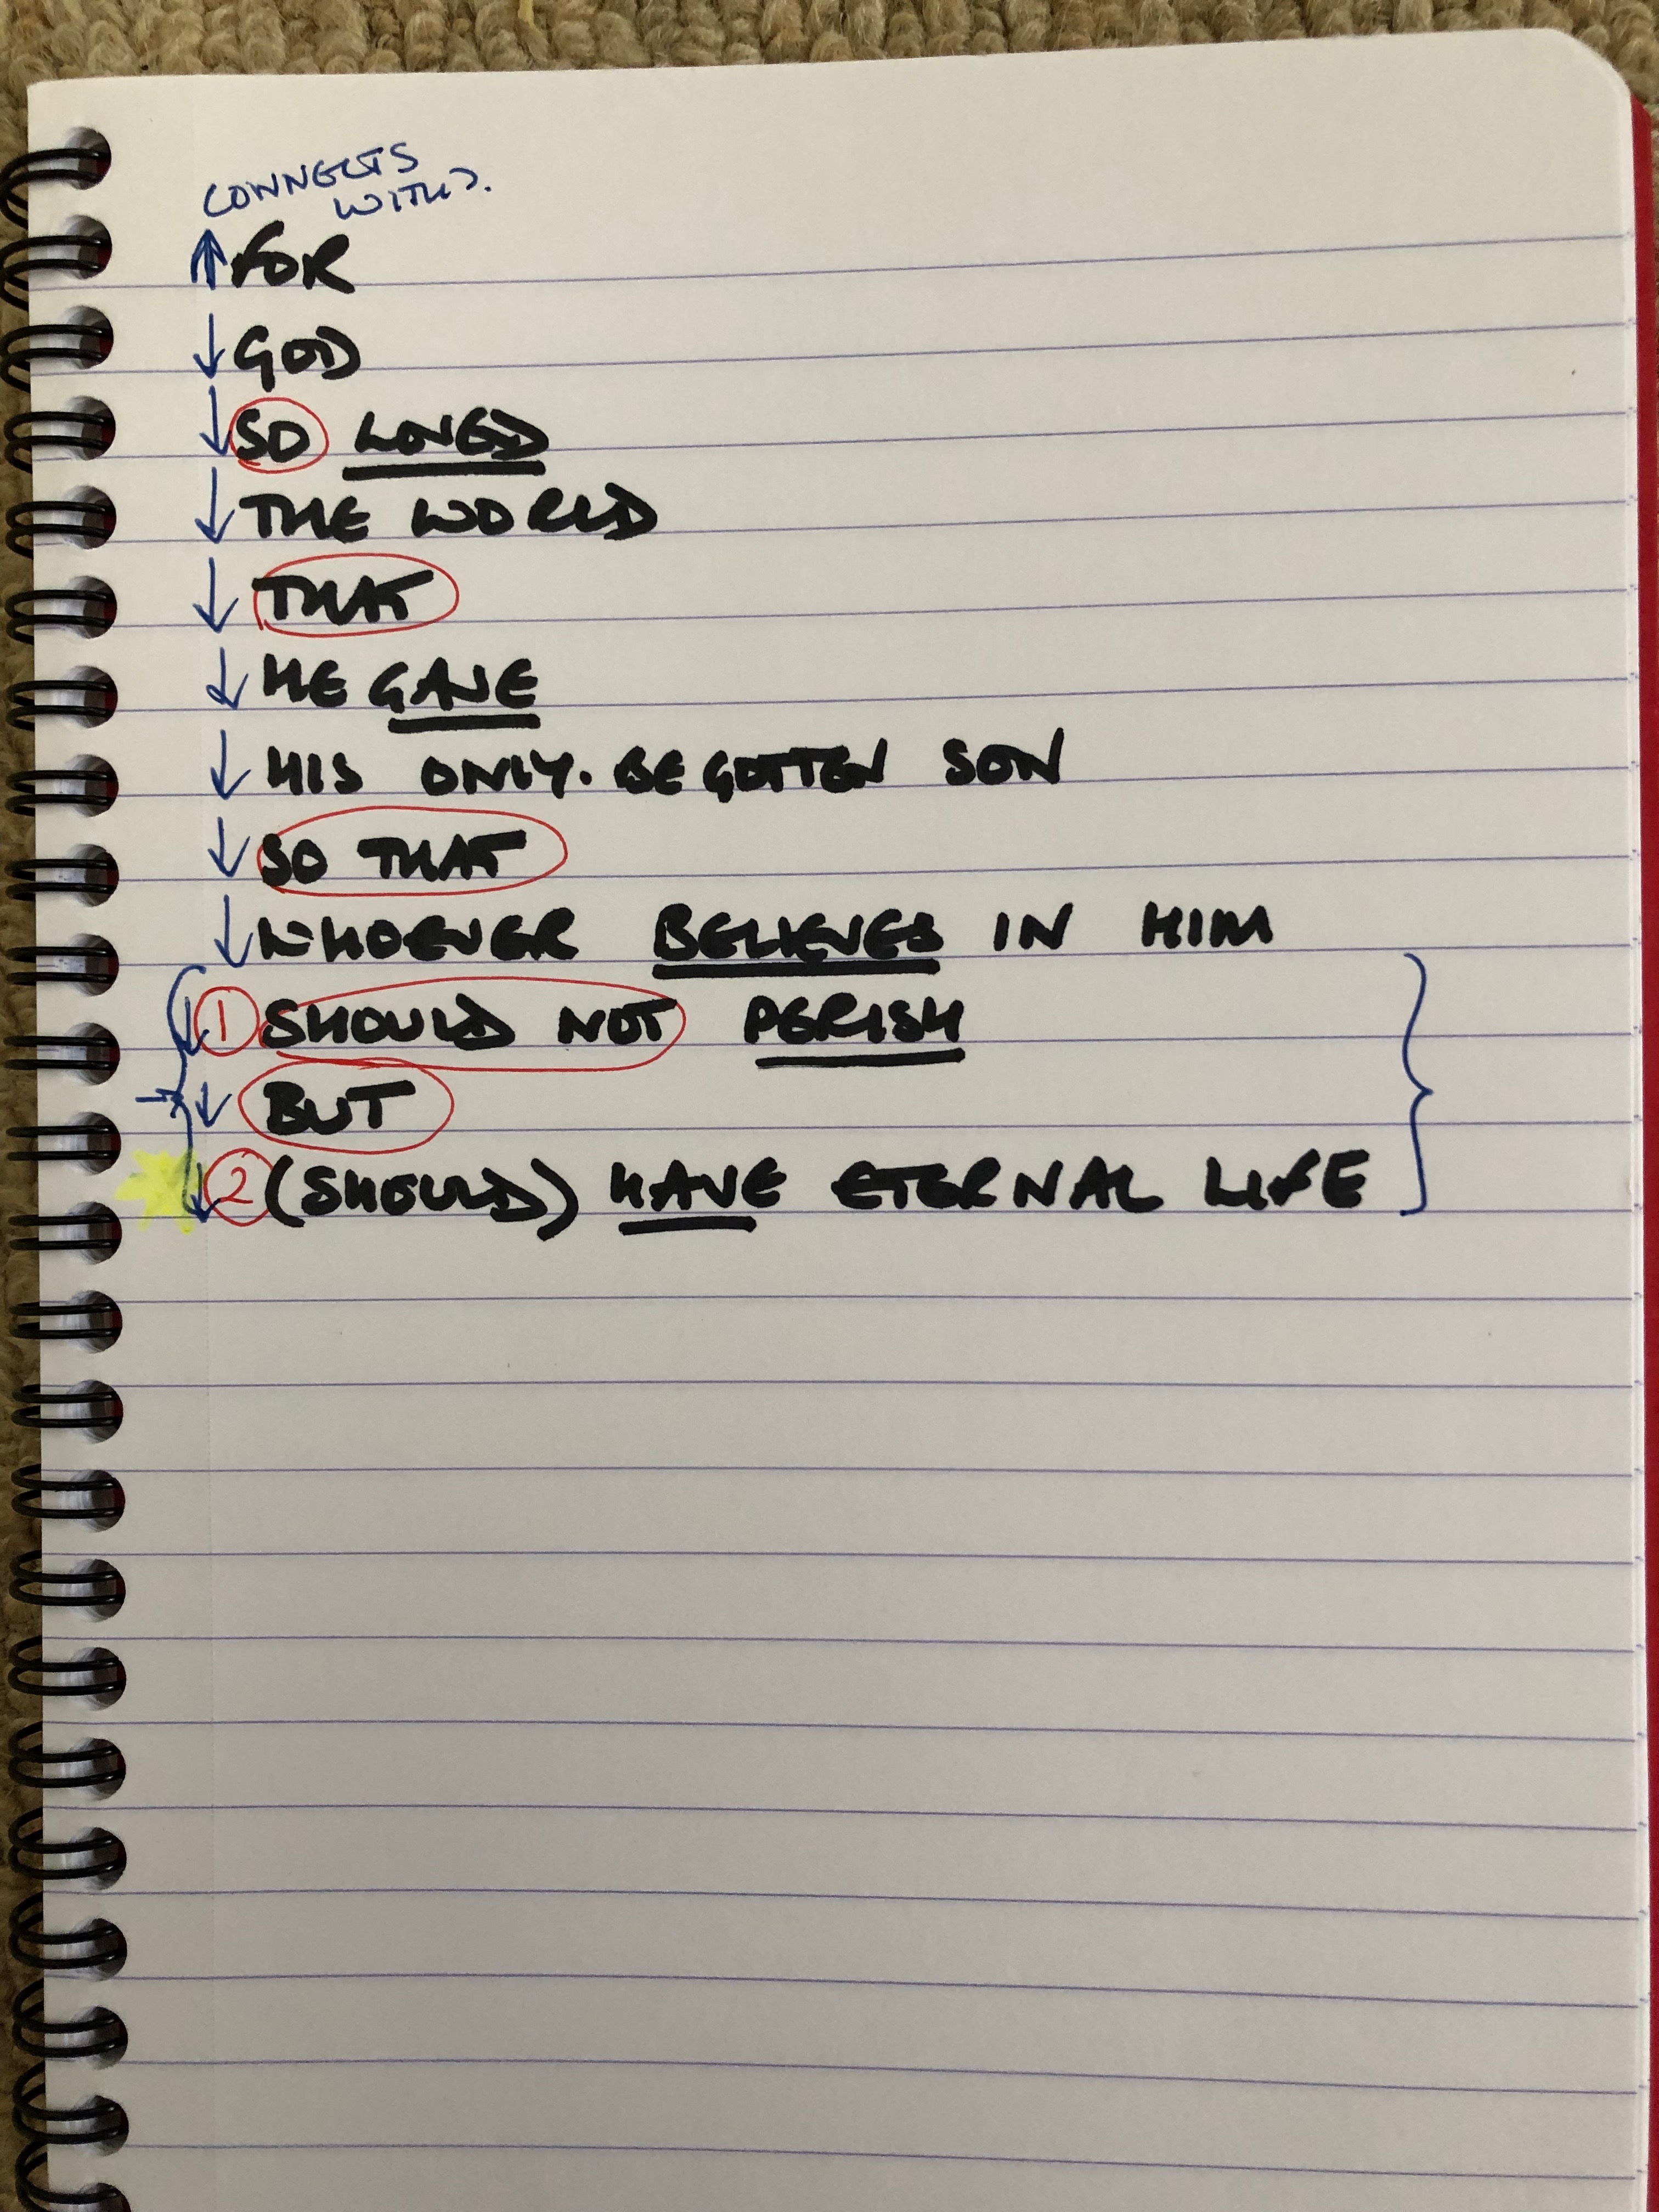 CONNECTS
WITH?
FOR
GOD
SO LOVED
THE WORLD
THAT
HE GAVE
HIS ONLY. BEGOTTEN SON
SO THAT
WHOEVER BELIEVES IN HIM
1 SHOULD NOT PERISH
BUT
2 (SHOULD) HAVE ETERNAL LIFE